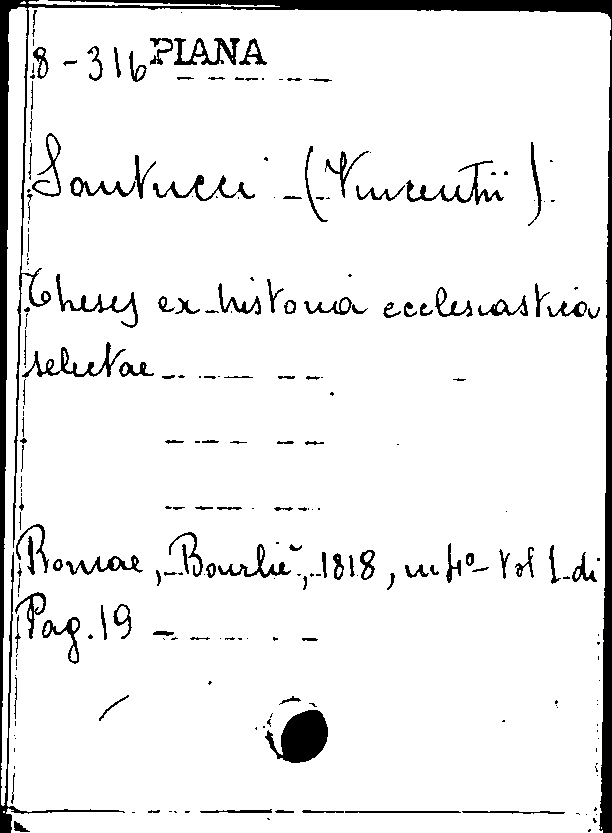 8-316 PIANA
Santucci (Vincentii)
Theses ex historia ecclesiastica
selectae
Romae, Bourliè, 1818, in 4º - Vol 1 di
Pag. 19 -